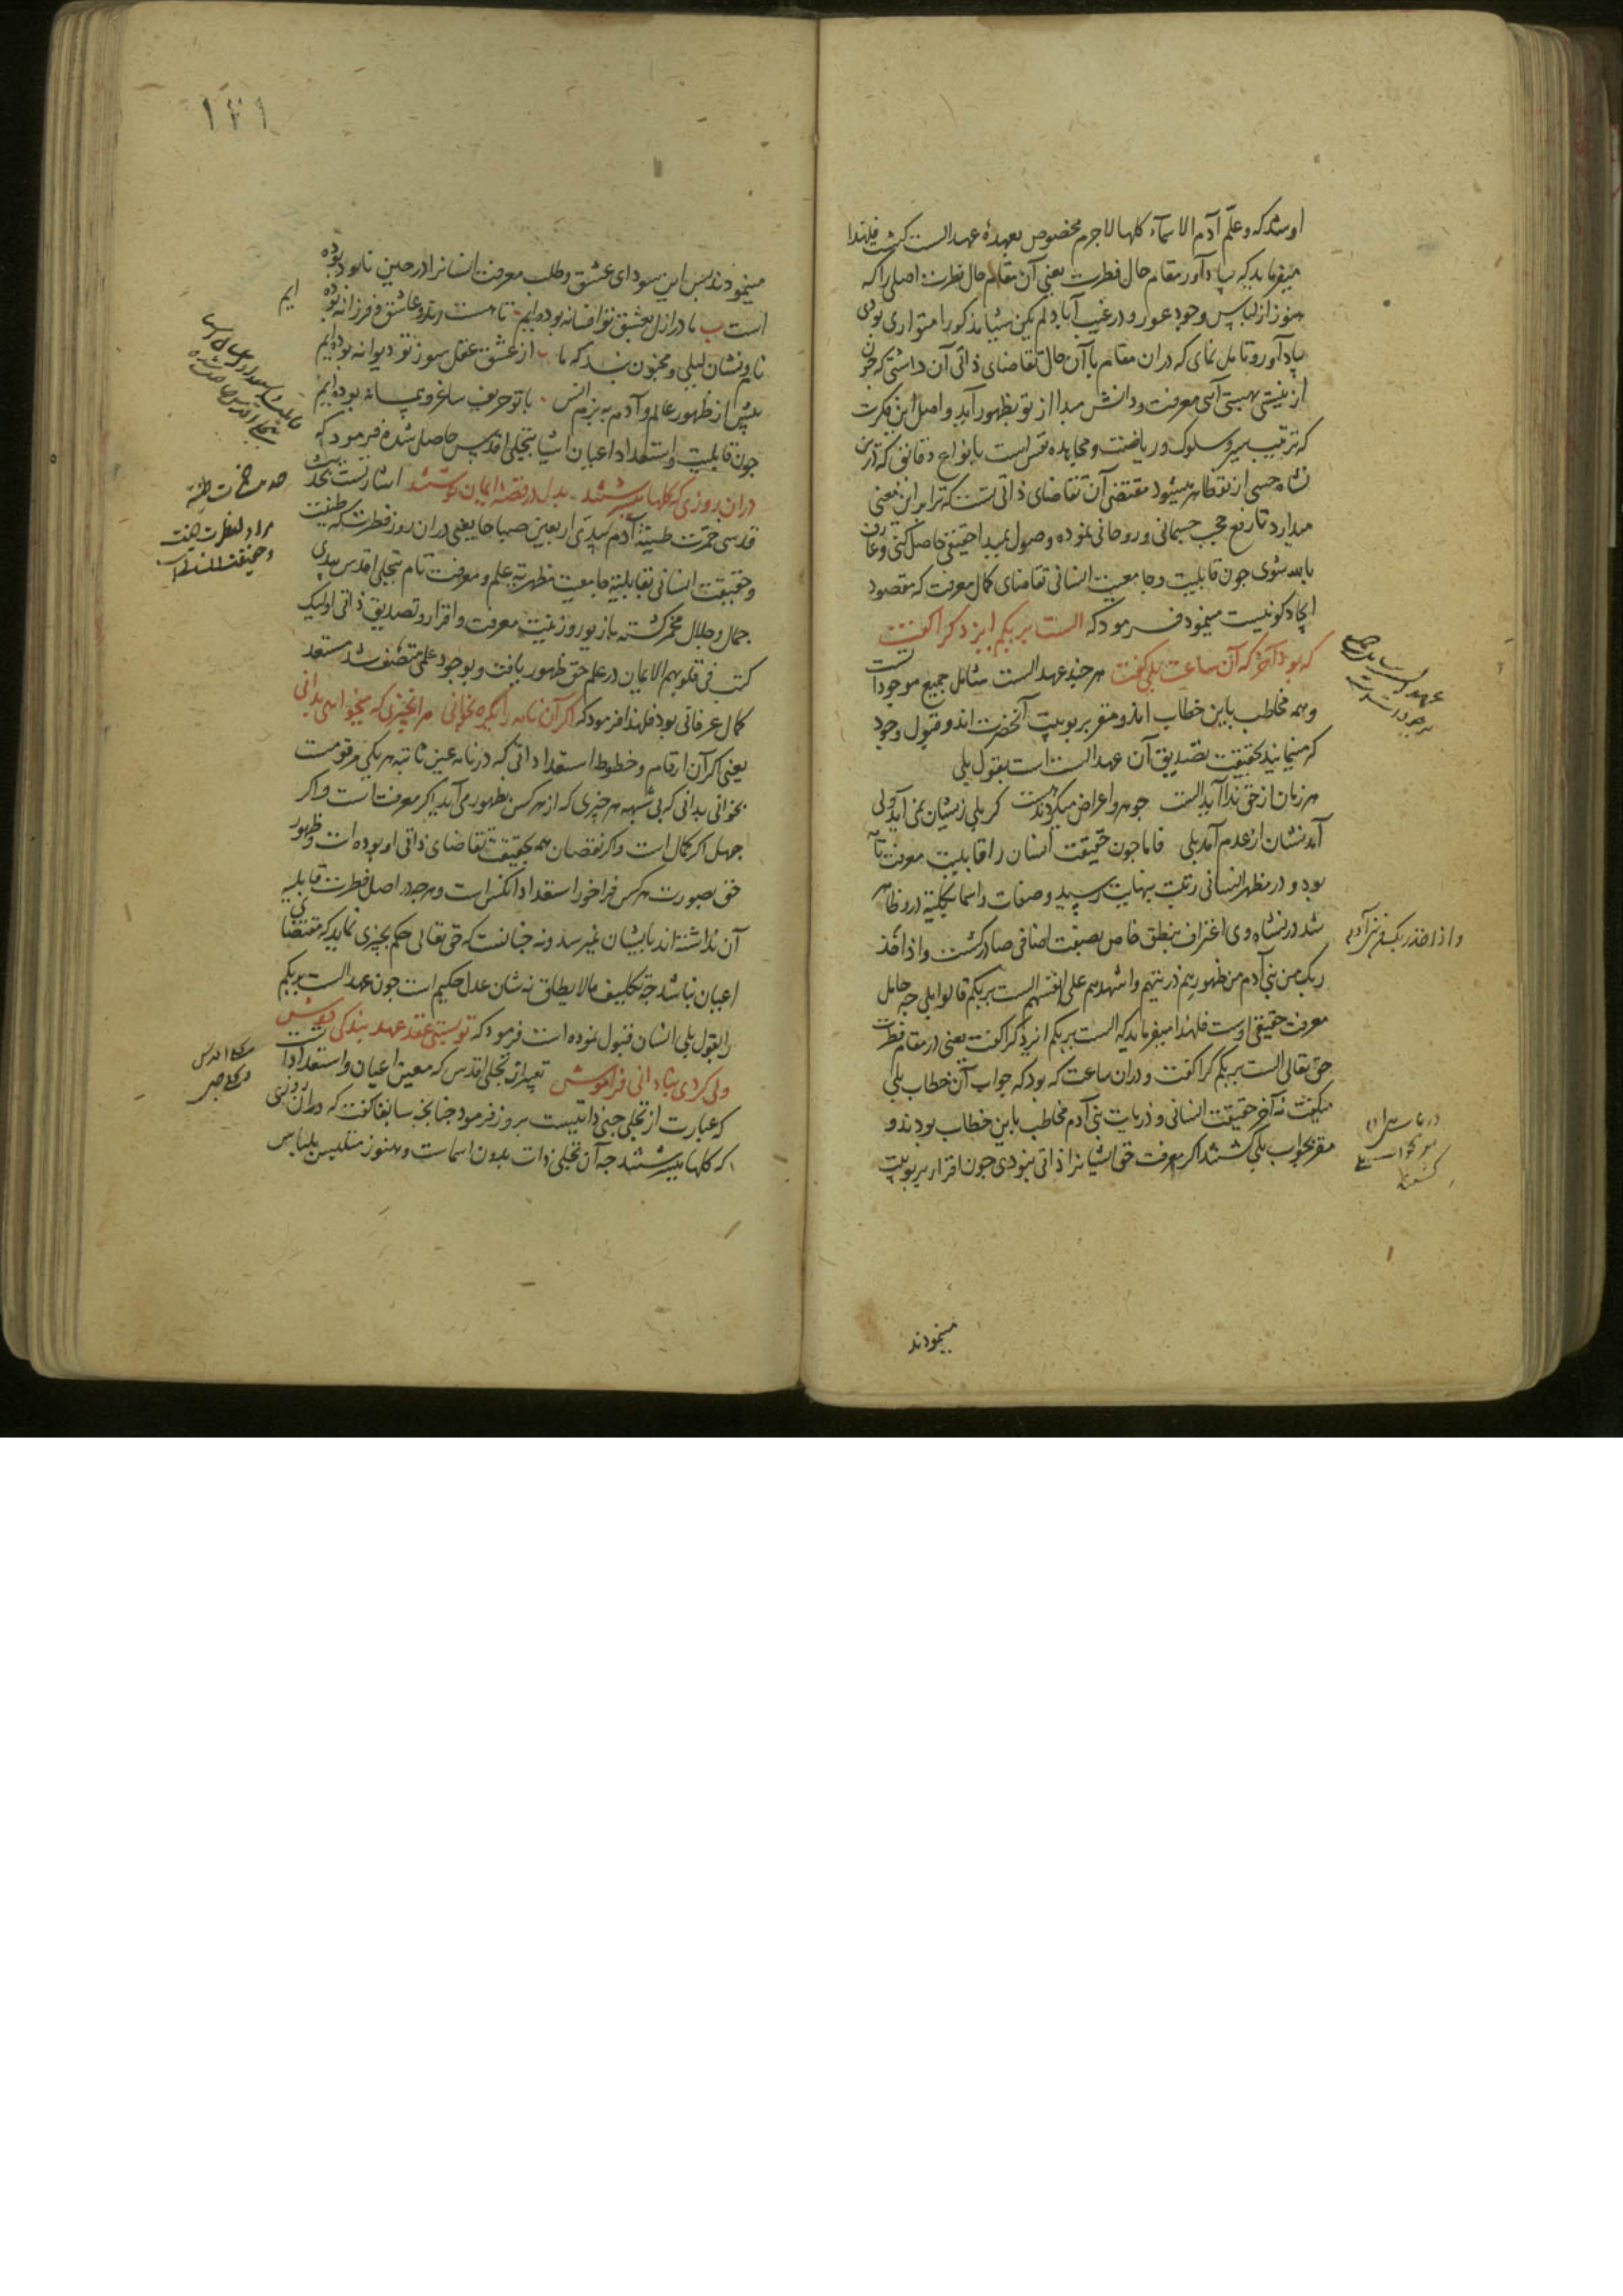 او شد که و علّم آدم الاسماء کلها لاجرم مخصوص بعهدهٔ عهد الست کشت فلهذا
میفرماید که بیاد آور مقام حال فطرت یعنی آن مقام حال فطرت اصلی را که
هنوز از لباس وجود عور و در غیب آباد لم یکن شیئا مذکورا متواری بودی
بیاد آور و تامل نمای که در ان مقام با آن حال تقاضای ذاتی آن داشتی که چون
از نیستی بهستی آیی معرفت و دانش مبدا از تو بظهور آید و اصل این فکرت
که ترتیب سیر و سلوک و ریاضت و مجاهده نفس است بانواع دقائق که درین
نشاه حسی از تو ظاهر میشود مقتضی آن تقاضای ذاتی تست که ترا برین معنی
میدارد تا رفع حجب جسمانی و روحانی نموده وصول بمبدا حقیقی حاصل کنی و عارف
بالله شوی جون قابلیت و جامعیت انسانی تقاضای کمال معرفت که مقصود
ایجاد کونیست مینمود فرمود که الست بربکم ایزد کرا گفت
که بود آخر که آن ساعت بلی گفت هر چند عهد الست شامل جمیع موجودات است
و همه مخاطب باین خطاب اند و مقر بربوبیت آنحضرت اند و قبول وجود
که مینمایند بحقیقت تصدیق آن عهد الست است بقول بلی
هر زمان از حق ندا آید الست جوهر و اعراض میکردند هست کر بلی زیشان نمی آید ولی
آمدنشان از عدم آمد بلی فاما جون حقیقت انسان را قابلیت معرفت تامه
بود و در مظهر انسانی رتبت بنهایت رسید و صفات و اسما بکلیته درو ظاهر
شد در نشاه وی اعتراف بنطق خاص بصیغت اضافی صادر کشت و اذ اخذ
ربک من بنی آدم من ظهورهم ذریتهم و اشهدهم علی انفسهم الست بربکم قالوا بلی جه حامل
معرفت حقیقی اوست فلهذا میفرماید که الست بربکم ایزد کرا گفت یعنی در مقام فطرت
حق تعالی الست بربکم کرا گفت و در ان ساعت که بود که جواب آن خطاب بلی
میگفت نه آخر حقیقت انسانی و ذریات بنی آدم مخاطب باین خطاب بودند و
مقر بجواب بلی کشتند اکر معرفت حق ایشانرا ذاتی نبودی جون اقرار بربوبیت
مینمودند
و اذ اخذ ربک من بنی آدم
۱۲۱
مینمودند پس این سودای عشق و طلب معرفت انسانرا در حین نابود بوده
است ب ما در ازل بعشق تو افسانه بوده ایم تا هست رند و عاشق و فرزانه بوده
ایم
نام و نشان لیلی و مجنون نبد که ما از عشق عقل سوز تو دیوانه بوده ایم
پیش از ظهور عالم و آدم به بزم انس با تو حریف ساغر و پیمانه بوده ایم
جون قابلیت و استعداد اعیان اشیا بتجلی اقدس حاصل شده فرمود که
دران روزی که گلها میسرشتند بدل در قصهٔ ایمان نوشتند اشارتست بحدیث
قدسی خمرت طینة آدم بیدی اربعین صباحا یعنی دران روز فطرت که طینت
و حقیقت انسانی بقابلیة جامعیت مظهریة علم و معرفت تام بتجلی اقدس بیدی
جمال و جلال مخمر کشته بازیور و زینت معرفت و اقرار و تصدیق ذاتی اولیک
کتب فی قلوبهم الایمان در علم حق ظهور یافت و بوجود علمی متصف شد مستعد
کمال عرفانی بود فلهذا فرمود که اکر آن نامه را یکره بخوانی هر انچیزی که میخواهی بدانی
یعنی اکر آن ارقام و خطوط استعداداتی که در نامه عین ثابته هر یکی مرقومست
بخوانی بدانی که بی شبهه هر چیزی که از هر کس بظهور می آید اکر معرفت است و اکر
جهل اکر کمال است و اکر نقصان همه بحقیقت تقاضای ذاتی او بوده است و ظهور
حق بصورت هر کس فراخور استعداد انکس است و هر چه در اصل فطرت قابلیه
آن نداشته اند بایشان نمیرسد و نه جنانست که حق تعالی حکم بچیزی نماید که مقتضای
اعیان نباشد جه تکلیف مالایطاق نه شان عدل حکیم است جون عهد الست بربکم
را بقول بلی انسان قبول نموده است فرمود که تو بستی عقد عهد بندگی دوش
ولی کردی بنادانی فراموش تعبیر از تجلی اقدس که معین اعیان و استعدادات
که عبارت از تجلی حبی ذاتیست بروز فرمود جنانجه سابقا گفت که دران روزی
که گلها میسرشتند جه آن تجلی ذات بدون اسماست و هنوز متلبس بلباس